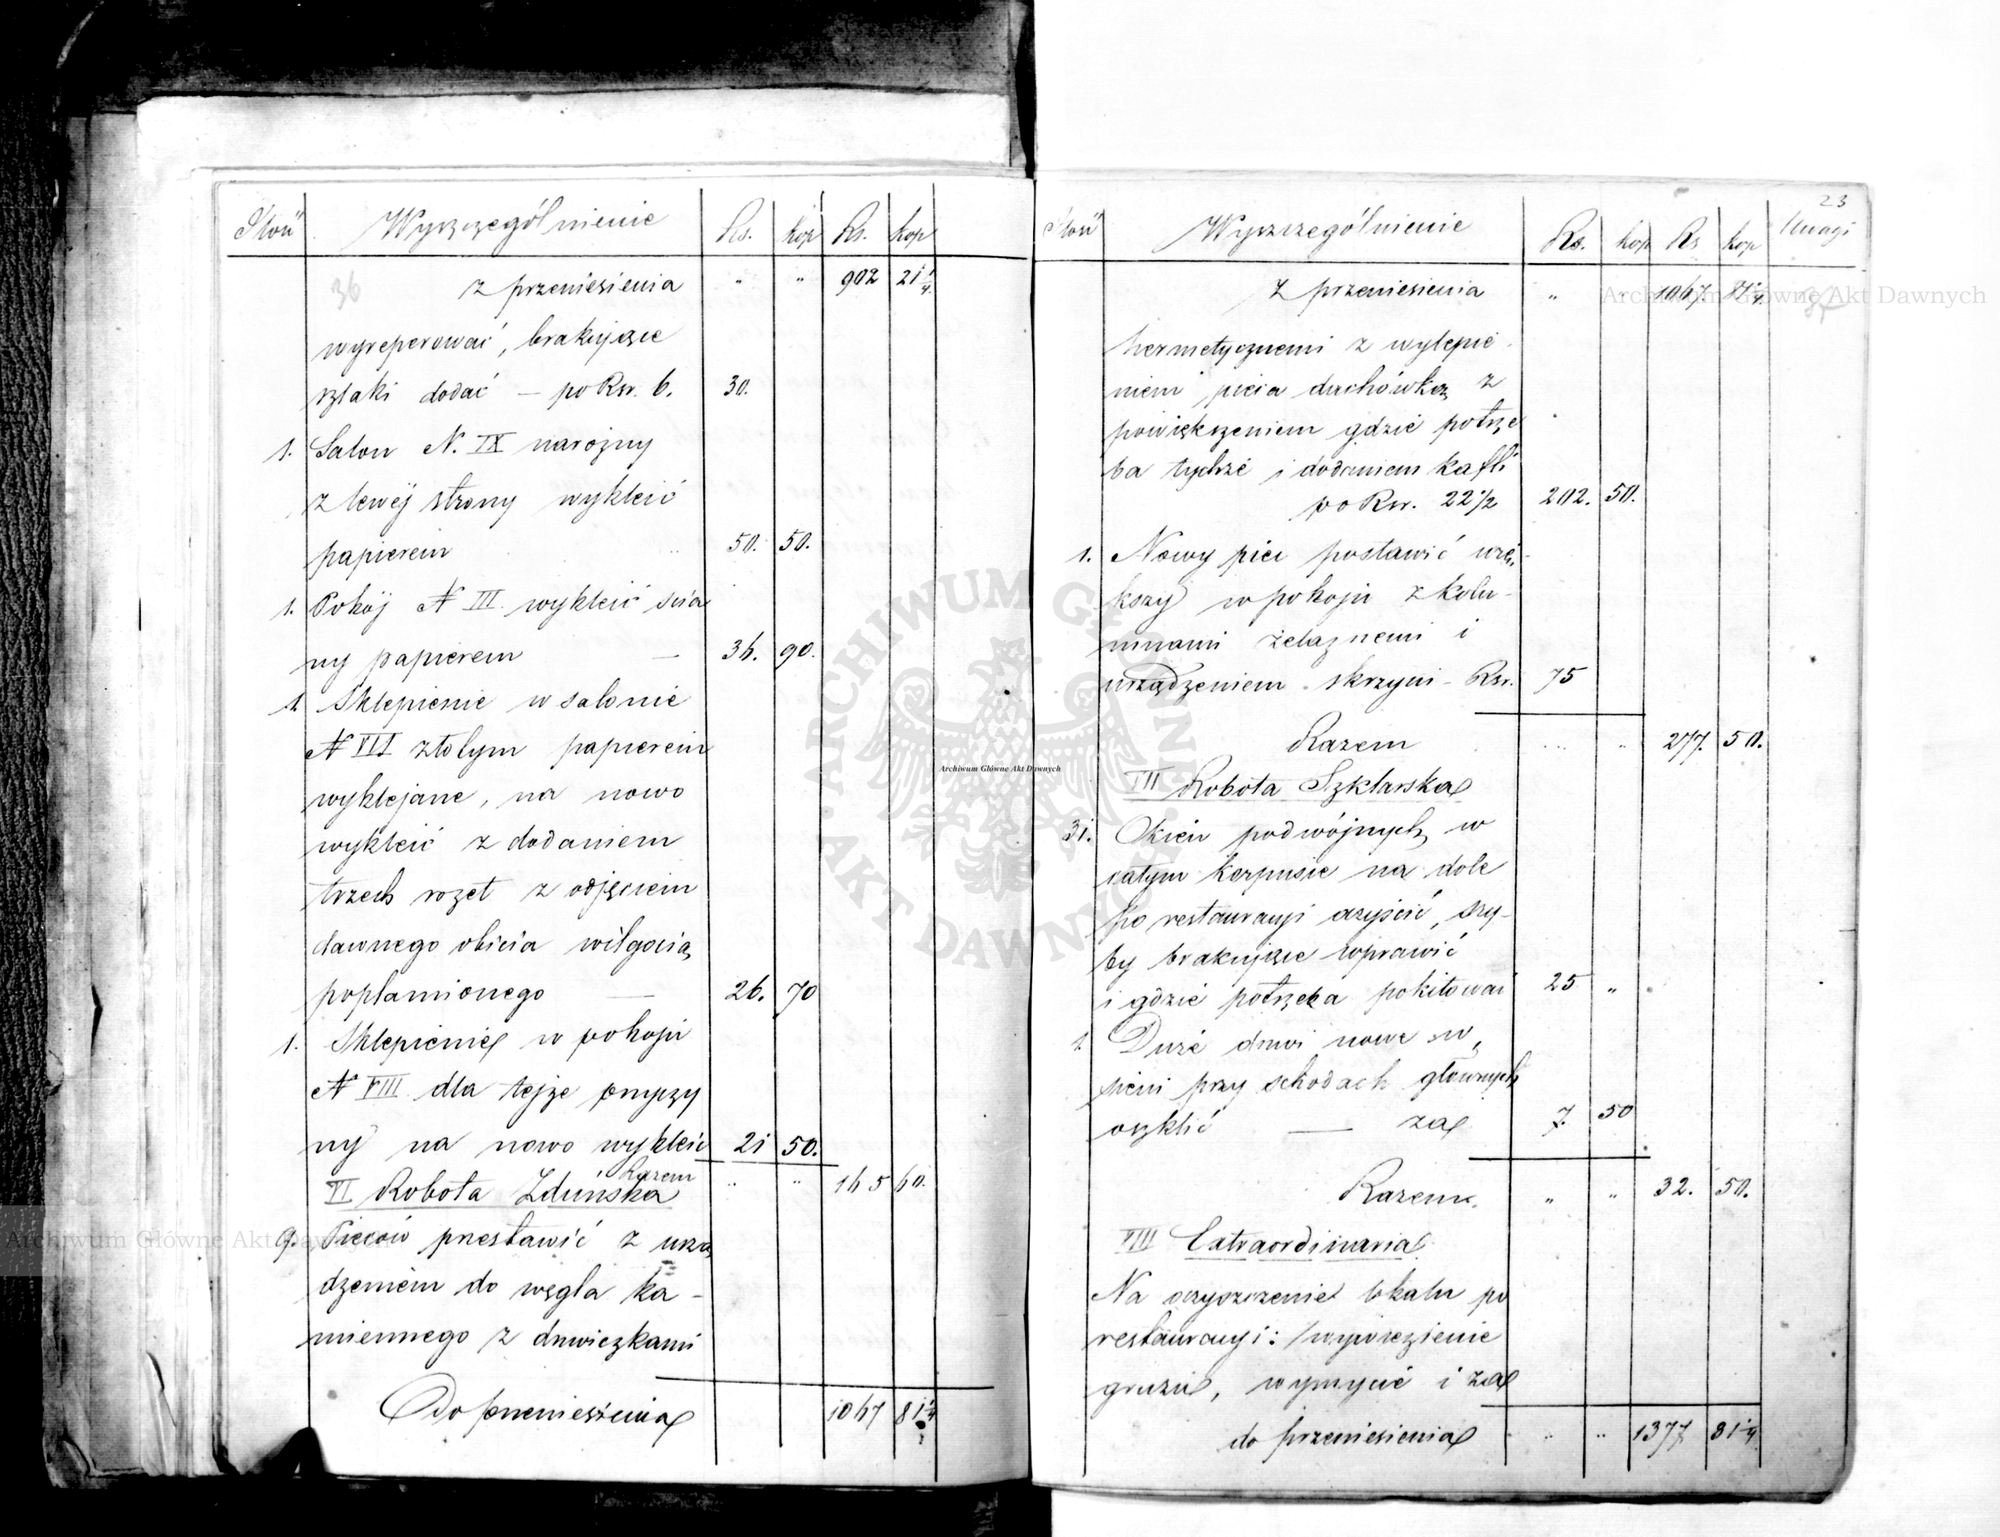 Ilość Wyszczególnienie Rs. kop Rs. kop
36 z przeniesienia " " 902 21 1/4
wyreperować, brakujące
szlaki dodać — po Rsr. 6. 30.
1. Salon N. IX narożny
z lewej strony wykleić
papierem 50. 50.
1. Pokój N III wykleić ścia
ny papierem — 36. 90.
1. Sklepienie w salonie
N VII złotym papierem
wyklejane, na nowo
wykleić z dodaniem
trzech rozet z odjęciem
dawnego obicia wilgocią
poplamionego — 26. 70
1. Sklepienie w pokoju
N VIII dla tejże przyczy
ny na nowo wykleić 21 50.
Razem " " 165 60.
VI Robota Zduńska
9. Pieców przestawić z urzą
dzeniem do węgla ka-
miennego z drzwiczkami
Do przeniesienia 1067 81 1/4
23
Ilość Wyszczególnienie Rs. kop Rs kop Uwagi
z przeniesienia " 1067. 81 1/4
hermetycznemi z wylepie-
niem pieca dachówką z
powiększeniem gdzie potrze
ba tychże i dodaniem kafli
po Rsr. 22 1/2 202. 50.
1. Nowy piec postawić wię-
kszy w pokoju z kolu-
mnami żelaznemi i
urządzeniem skrzyni - Rsr. 75
Razem ... " 277. 50.
VII Robota Szklarska
31. Okien podwójnych w
całym korpusie na dole
po restauracyi czyścić, szy-
by brakujące wprawić
i gdzie potrzeba pokitować 25 "
1. Duże drzwi nowe w
sieni przy schodach głównych
oszklić — za 7. 50
Razem " " 32. 50.
VIII Extraordinaria
Na oczyszczenie lokalu po
restauracyi: /wywiezienie
gruzu, wymycie i za
do przeniesienia " " 1377 81 1/4
Archiwum Główne Akt Dawnych
Archiwum Główne Akt Dawnych
Archiwum Główne Akt Dawnych
ARCHIWUM GŁÓWNE AKT DAWNYCH